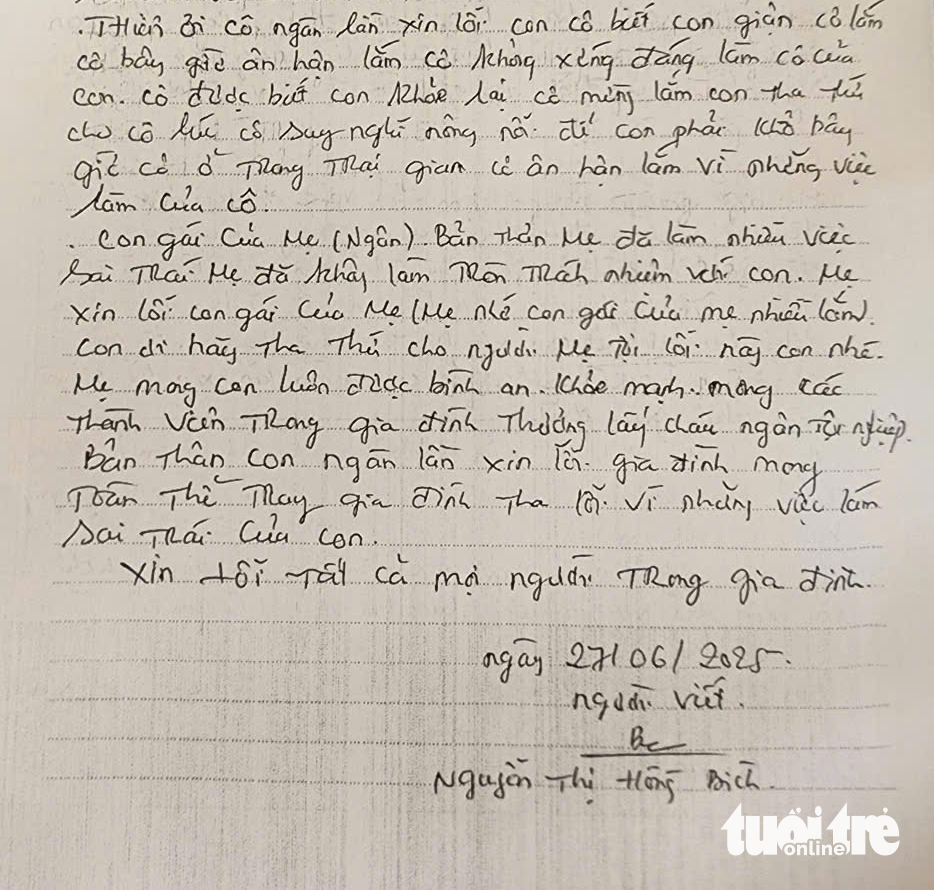 . Thiên ơi cô ngàn lần xin lỗi con cô biết con giận cô lắm
cô bây giờ ân hận lắm cô không xứng đáng làm cô của
con. cô được biết con khỏe lại cô mừng lắm con tha thứ
cho cô lúc cô suy nghĩ nông nổi để con phải khổ bây
giờ cô ở trong trại giam cô ân hận lắm vì những việc
làm của cô.
. con gái của mẹ (Ngân). Bản thân mẹ đã làm nhiều việc
sai trái mẹ đã không làm tròn trách nhiệm với con. Mẹ
xin lỗi con gái của mẹ (mẹ nhớ con gái của mẹ nhiều lắm).
con hãy tha thứ cho người mẹ tội lỗi này con nhé.
Mẹ mong con luôn được bình an. khỏe mạnh. mong các
thành viên trong gia đình thương lấy cháu ngân tội nghiệp.
Bản thân con ngàn lần xin lỗi gia đình mong
toàn thể gia đình tha lỗi vì những việc làm
sai trái của con.
xin lỗi tất cả mọi người trong gia đình.
ngày 27/06/2025.
người viết.
Nguyễn Thị Hồng Bích.
tuổi trẻ
online